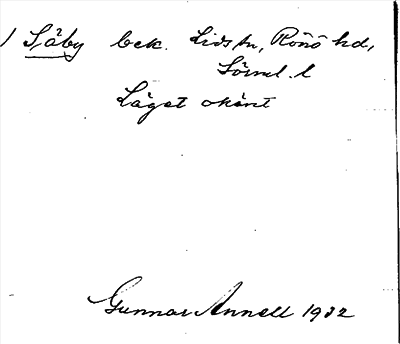 1 Säby bek. Lids sn, Rönö hd,
Sörml. l
Läget okänt
Gunnar Annell 1932